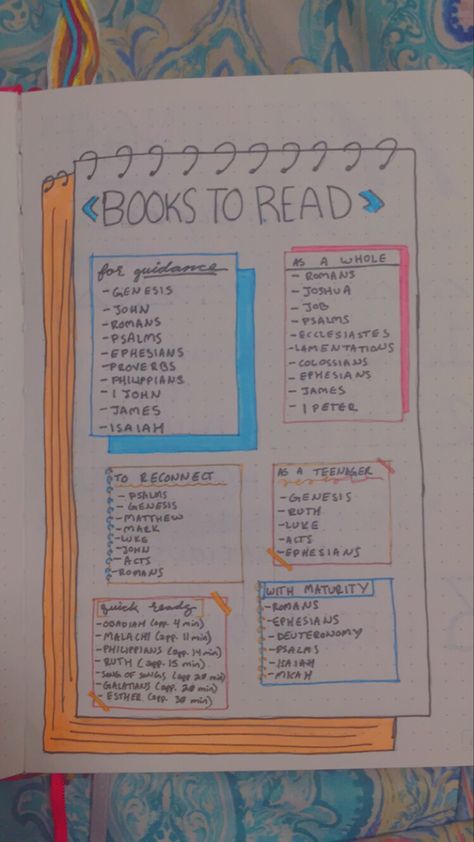 BOOKS TO READ
for guidance
- GENESIS
- JOHN
- ROMANS
- PSALMS
- EPHESIANS
- PROVERBS
- PHILIPPIANS
- 1 JOHN
- JAMES
- ISAIAH
AS A WHOLE
- ROMANS
- JOSHUA
- JOB
- PSALMS
- ECCLESIASTES
- LAMENTATIONS
- COLOSSIANS
- EPHESIANS
- JAMES
- 1 PETER
TO RECONNECT
- PSALMS
- GENESIS
- MATTHEW
- MARK
- LUKE
- JOHN
- ACTS
- ROMANS
AS A TEENAGER
- GENESIS
- RUTH
- LUKE
- ACTS
- EPHESIANS
quick ready
- OBADIAH (app. 4 min)
- MALACHI (app. 11 min)
- PHILIPPIANS (app. 14 min)
- RUTH (app. 15 min)
- SONG OF SONGS (app 20 min)
- GALATIANS (app. 20 min)
- ESTHER (app. 30 min)
WITH MATURITY
- ROMANS
- EPHESIANS
- DEUTERONOMY
- PSALMS
- ISAIAH
- MICAH